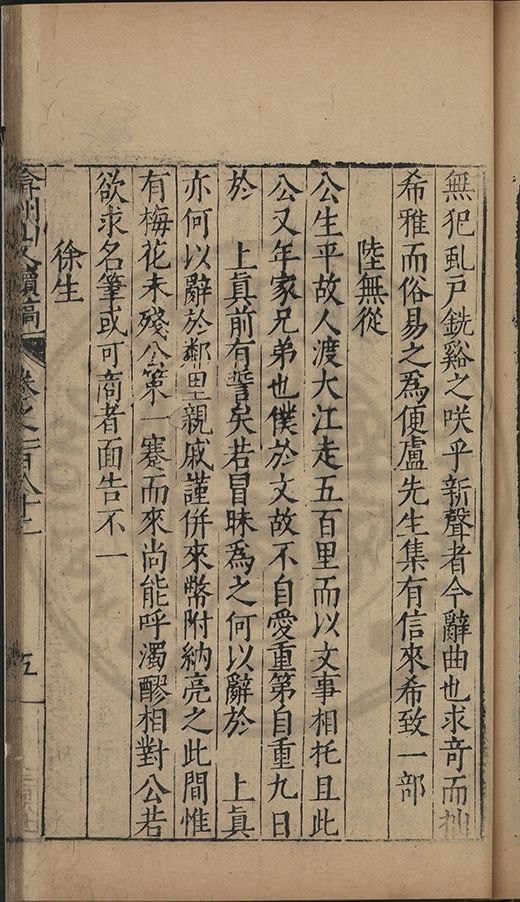 無犯虱戸銑谿之咲乎新聲者今辭曲也求竒而拙
希雅而俗易之爲便盧先生集有信來希致一部
陸無從
公生平故人渡大江走五百里而以文事相托且此
公又年家兄弟也僕於文故不自愛重第自重九日
於 上眞前有誓矣若冒昧爲之何以辭於 上眞
亦何以辭於鄰里親戚謹併來幣附納亮之此間惟
有梅花未殘公第一蹇而來尚能呼濁醪相對公若
欲求名筆或可商者面告不一
徐生
弇州山人續稿 卷之一百八十二 五